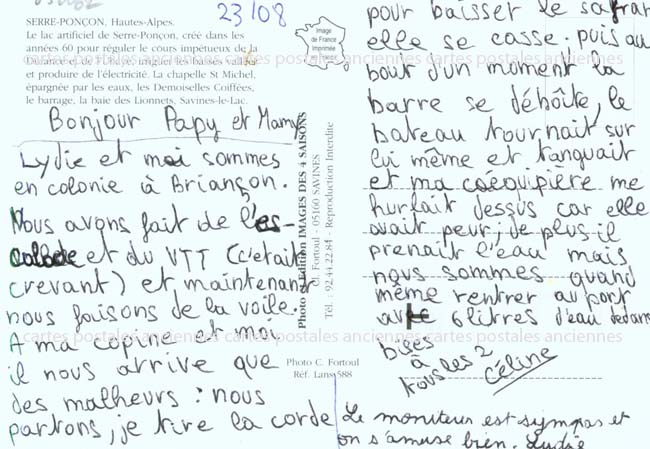 23/08
SERRE-PONÇON, Hautes-Alpes.
Le lac artificiel de Serre-Ponçon, créé dans les
années 60 pour réguler le cours impétueux de la
Durance et de l'Ubaye, irriguer les basses vallées
et produire de l'électricité. La chapelle St Michel,
épargnée par les eaux, les Demoiselles Coiffées,
le barrage, la baie des Lionnets, Savines-le-Lac.
Image
de France
Imprimée
en France
cartes postales anciennes cartes postales anciennes cartes postales anciennes
Bonjour Papy et Mamy
Lydie et moi sommes
en colonie à Briançon.
Nous avons fait de l'es-
calade et du VTT (c'était
crevant) et maintenant
nous faisons de la voile.
A ma copine et moi
il nous arrive que
des malheurs : nous
partons, je tire la corde
Photo et Edition IMAGES DES 4 SAISONS
Cl. Fortoul - 05160 SAVINES
Tél. : 92.44.22.84 - Reproduction Interdite
Photo C. Fortoul
Réf. Lans 588
pour baisser le safran
elle se casse. puis au
bout d'un moment la
barre se déboîte, le
bateau tournait sur
lui même et tanguait
et ma coéquipière me
hurlait dessus car elle
avait peur; de plus il
prenait l'eau mais
nous sommes quand
même rentrer au port
avec 6 litres d'eau dedans
bises
à
tous les 2
Céline
Le moniteur est sympas et
on s'amuse bien. Lydie
cartes postales anciennes cartes postales anciennes cartes postales anciennes